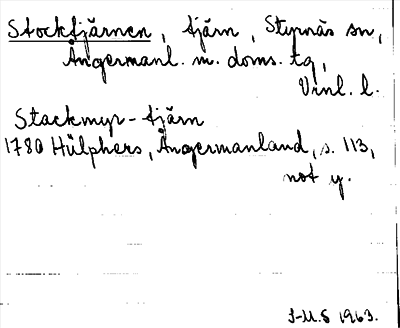 Stocktjärnen, tjärn, Styrnäs sn,
Ångermanl. m. doms. tg,
Vrnl. l.
Stackmyr-tjärn
1780 Hülphers, Ångermanland, s. 113,
not y.
I-M.S 1963.